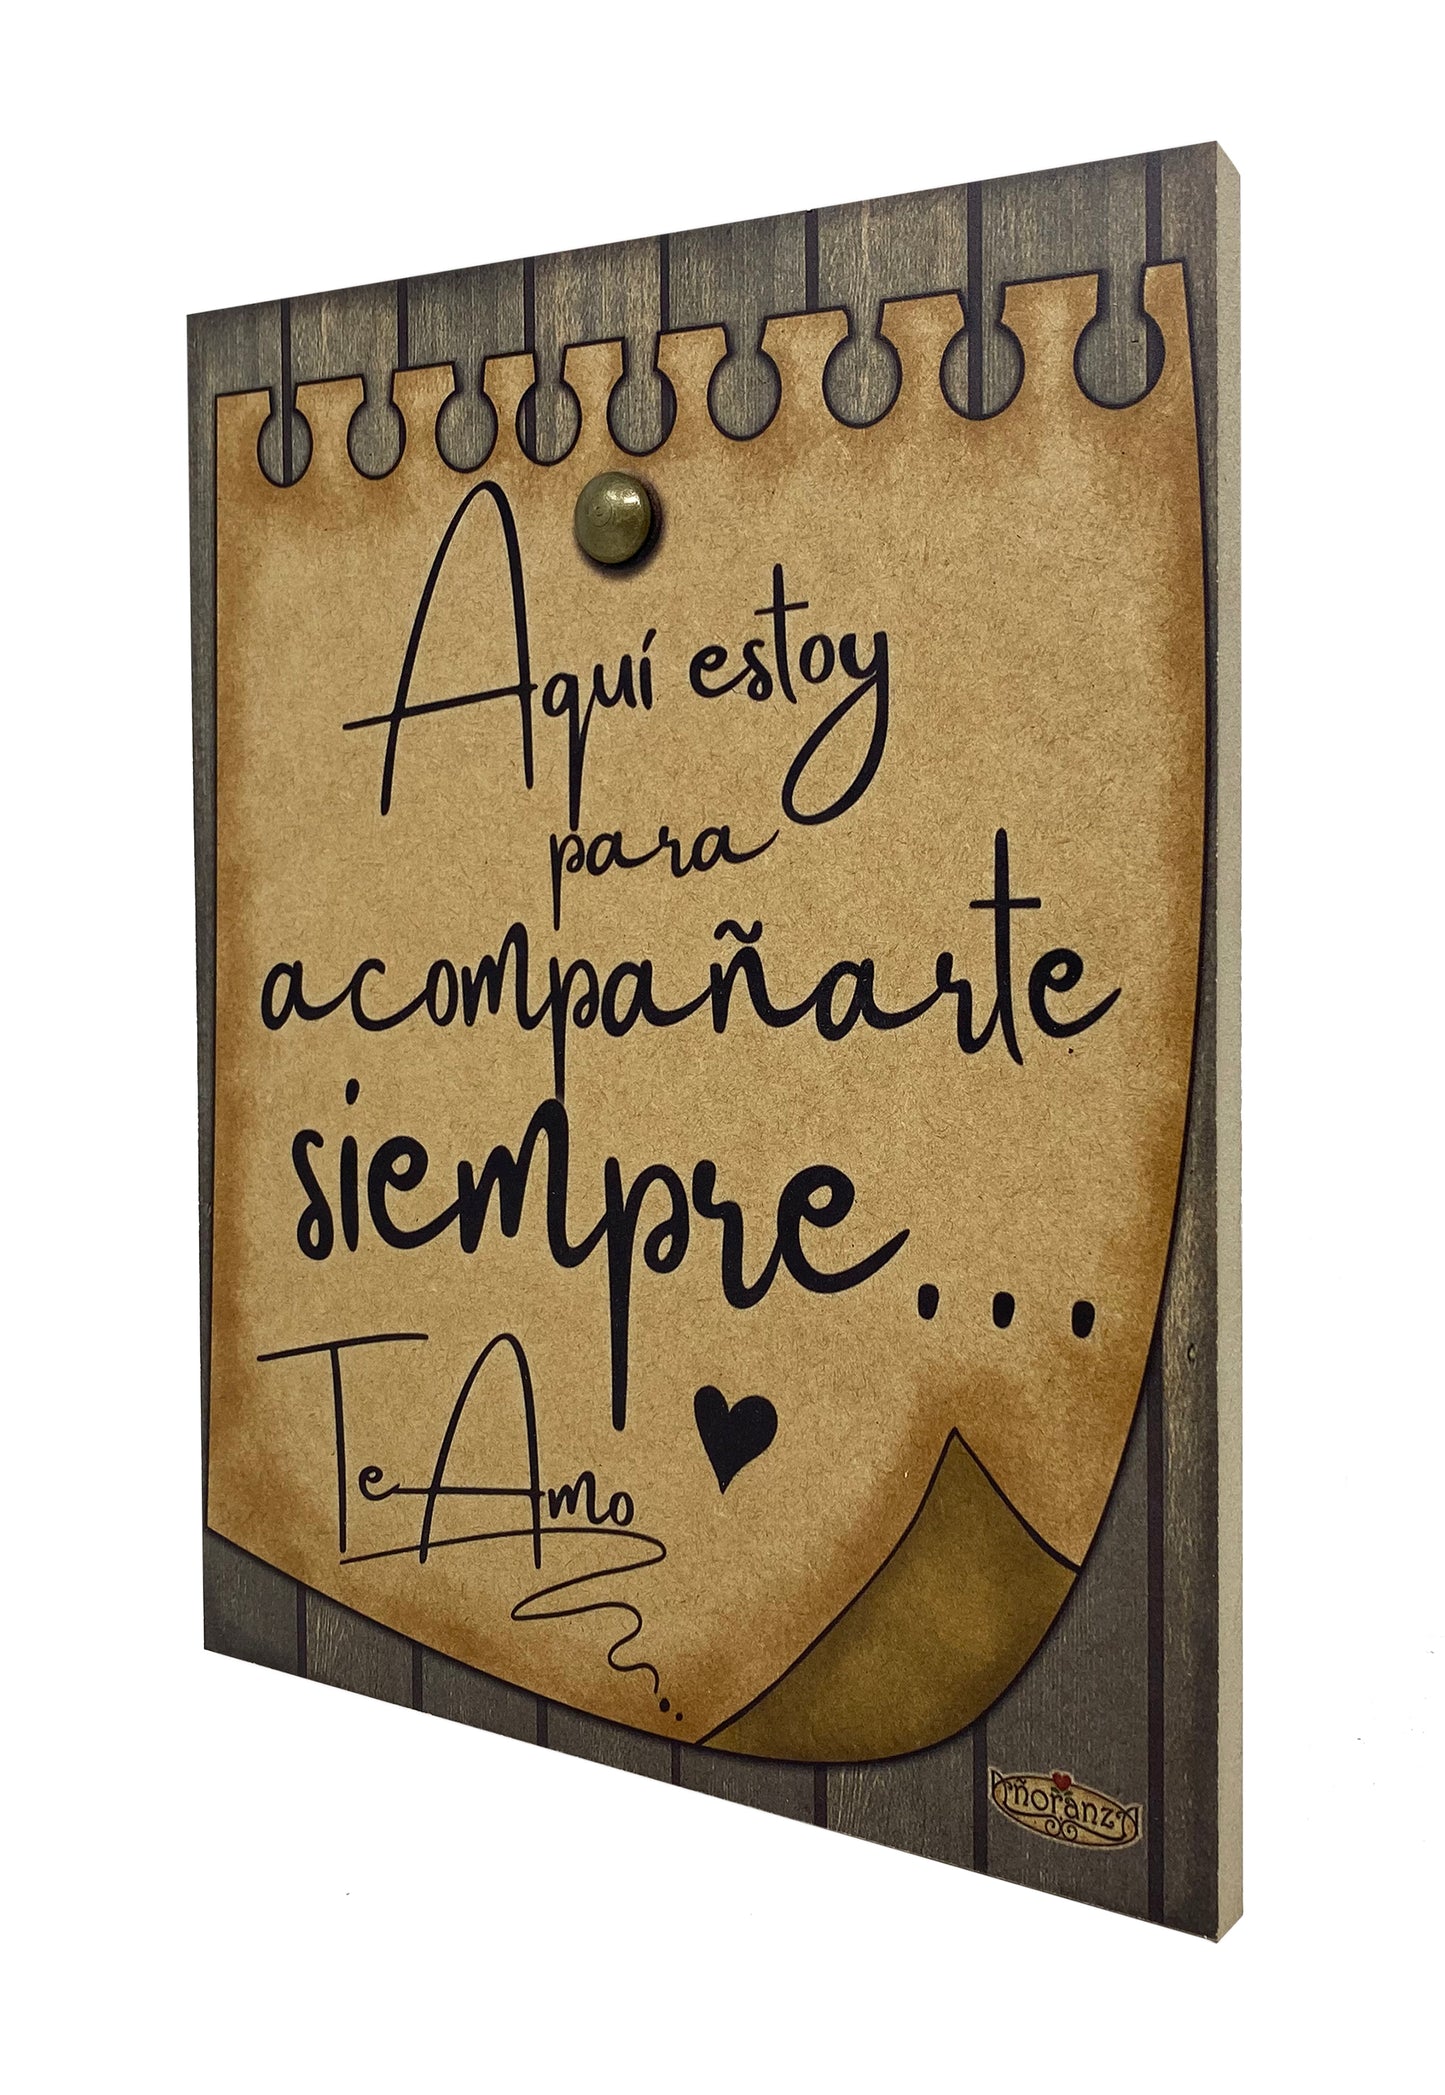 Aquí estoy
para
acompañarte
siempre...
Te Amo
Añoranza